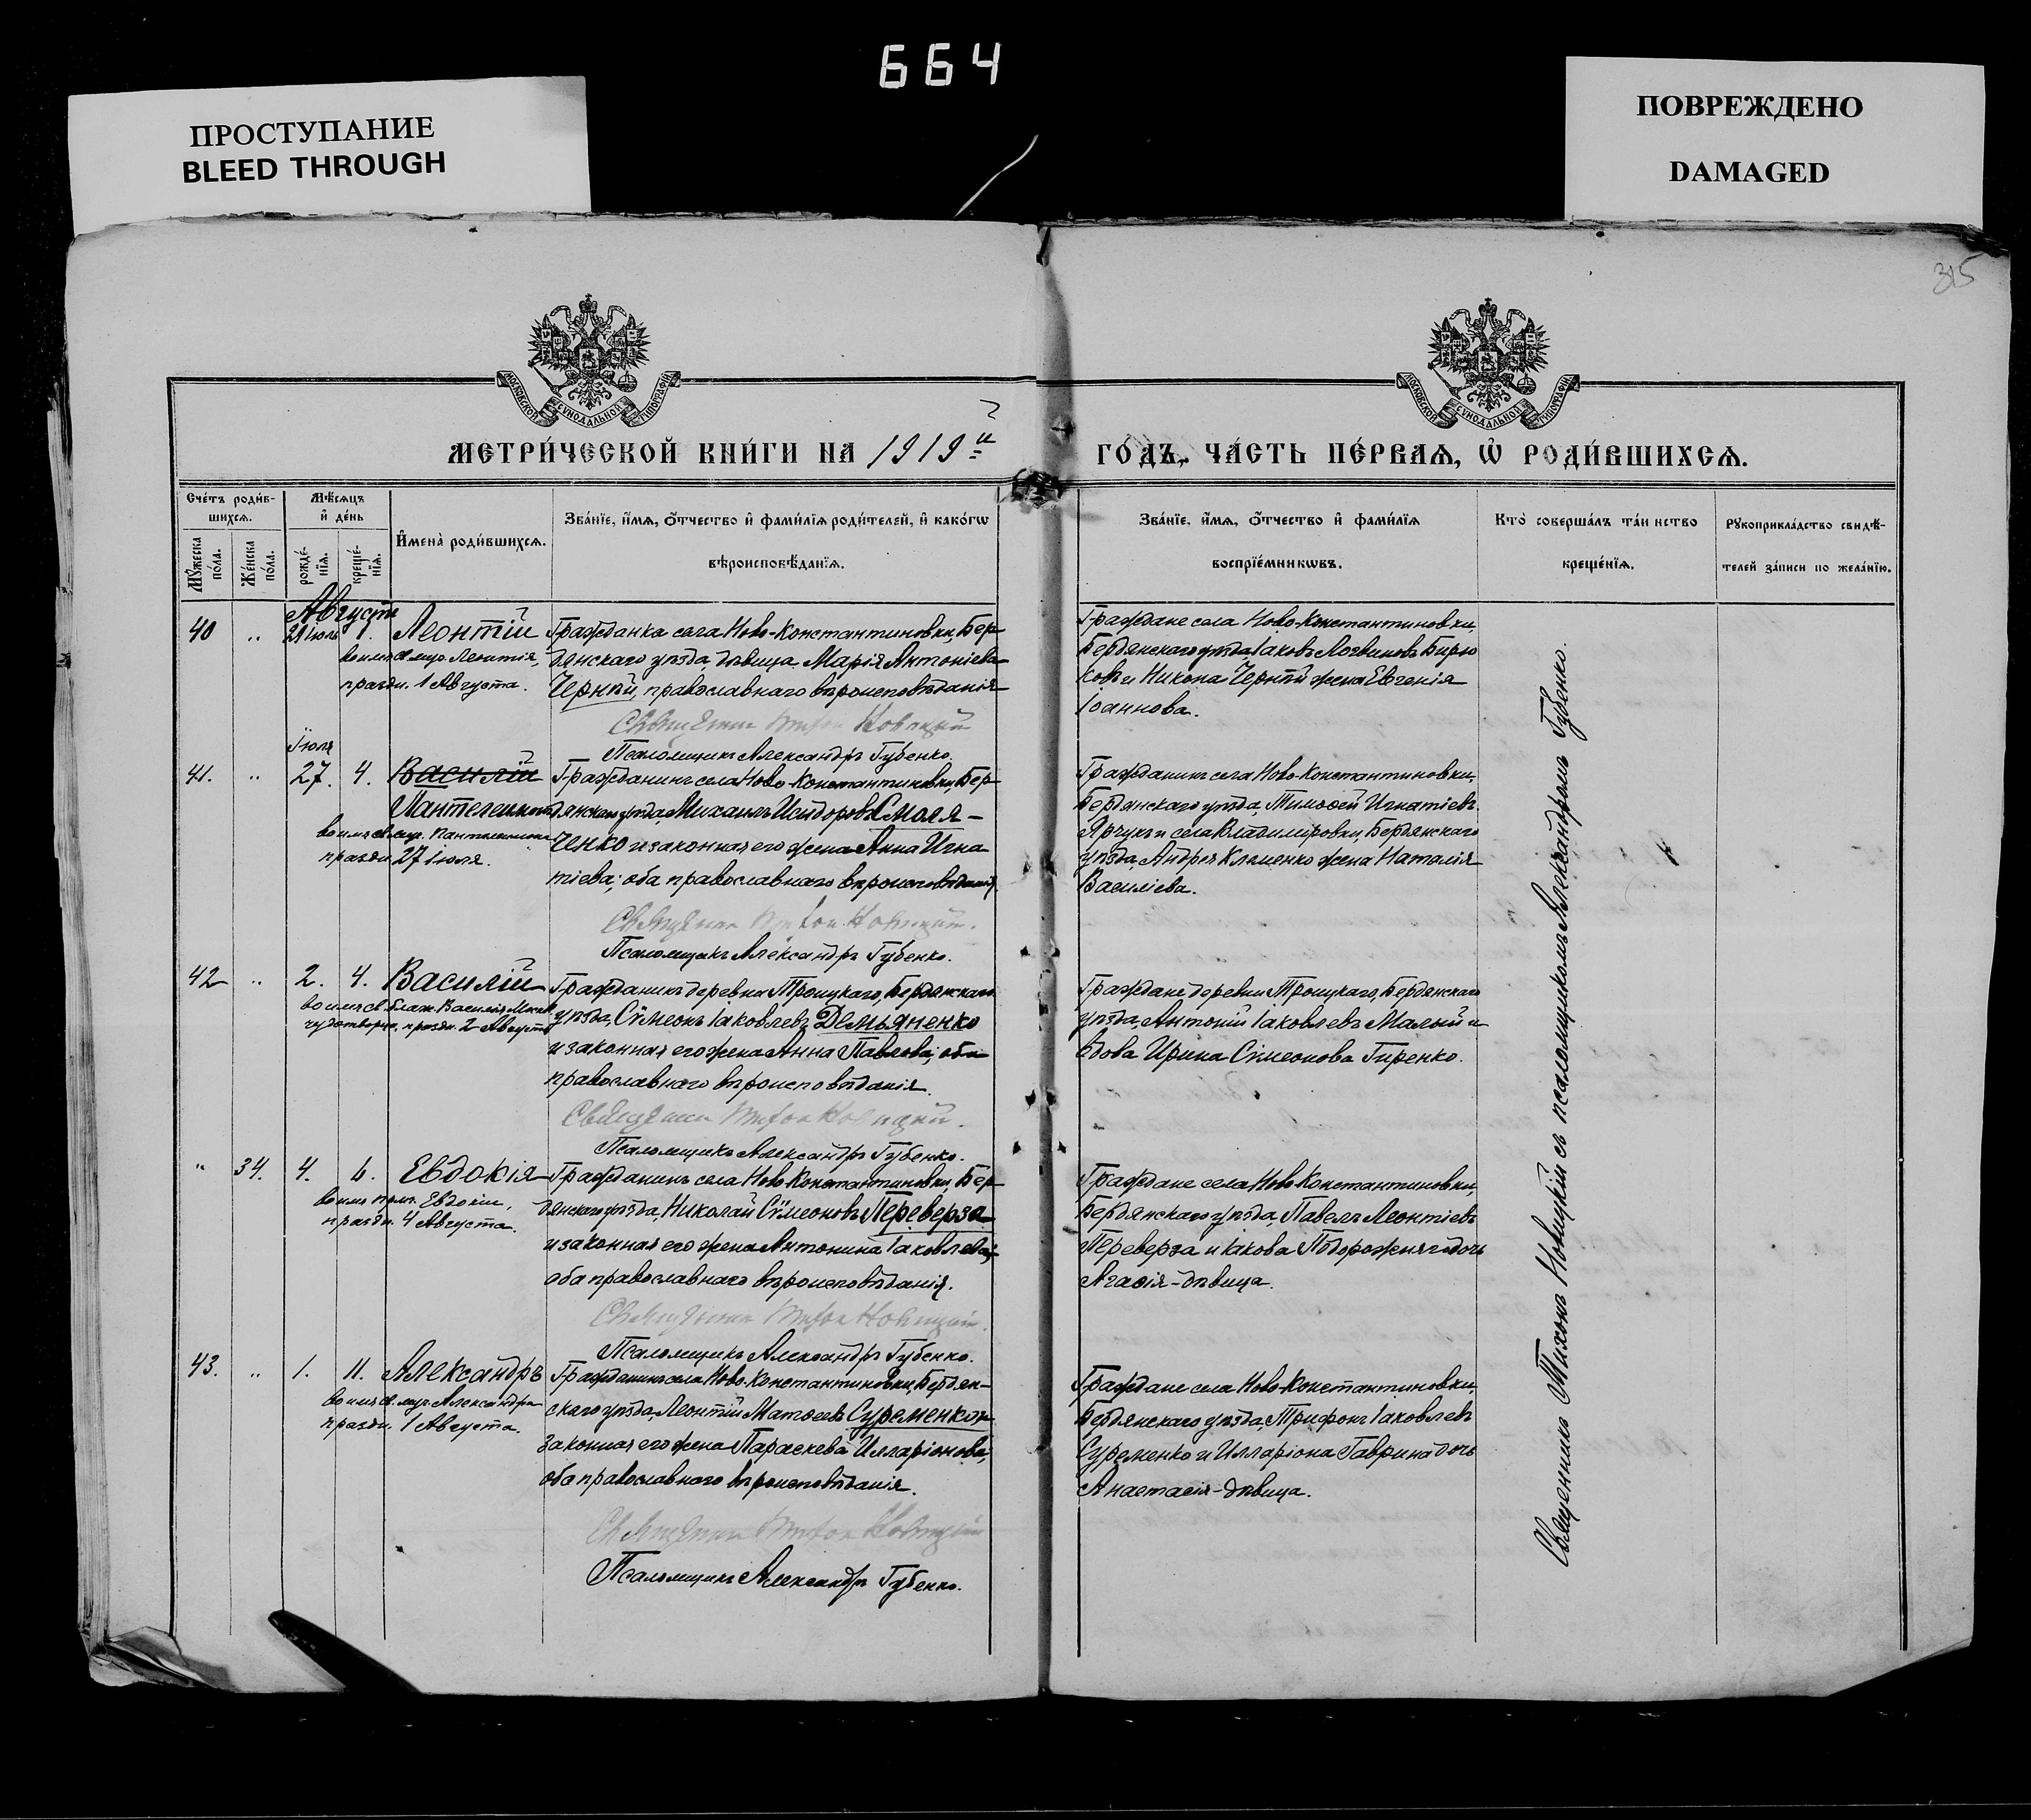 664
ПРОСТУПАНИЕ
BLEED THROUGH
ПОВРЕЖДЕНО
DAMAGED
315
МОСКОВСКОЙ СѴНОДАЛЬНОЙ ТИПОГРАФІИ
МОСКОВСКОЙ СѴНОДАЛЬНОЙ ТИПОГРАФІИ
МЕТРИ́ЧЕСКОЙ КНИ́ГИ НА 1919й
ГО́ДЪ, ЧА́СТЬ ПЕ́РВАѦ, Ѽ РОДИ́ВШИХСѦ.
Сче́тъ роди́в-
шихсѧ.
Мꙋ́жеска по́ла.
Же́нска по́ла.
Мѣ́сѧцъ
и҆ де́нь
рожде́-
нїѧ.
креще́-
нїѧ.
И҆мена̀ роди́вшихсѧ.
Зва́нїе, и҆́мѧ, ѻ҆́тчество и҆ фами́лїѧ роди́телей, и҆ како́гѡ
вѣроисповѣ́данїѧ.
Зва́нїе, и҆́мѧ, ѻ҆́тчество и҆ фами́лїѧ
воспрїе́мникѡвъ.
Кто̀ соверша́лъ та́инство
креще́нїѧ.
Рꙋкоприкла́дство свидѣ́-
телей за́писи по жела́нїю.
Августъ
40 " 21 іюля 1. Леонтій
во имя св. муч. Леонтія,
праздн. 1 Августа.
Гражданка села Ново-Константиновки, Бер-
дянскаго уѣзда, дѣвица Марія Антоніева
Черный, православнаго вѣроисповѣданія
Священникъ Тихонъ Новицкій
Псаломщикъ Александръ Губенко.
Граждане села Ново-Константиновки,
Бердянскаго уѣзда, Іаковъ Логвиновъ Бирю
ковъ и Никона Черный жена Евгенія
Іоаннова.
Іюля
41. " 27. 4. Василій
Пантелеимонъ
во имя св. муч. Пантелеимона
праздн. 27 іюля.
Гражданинъ села Ново-Константиновки, Бер-
дянскаго уѣзда, Михаилъ Исидоровъ Смоля-
ченко и законная его жена Анна Игна
тіева; оба православнаго вѣроисповѣданія
Священникъ Тихонъ Новицкій.
Псаломщикъ Александръ Губенко.
Гражданинъ села Ново-Константиновки,
Бердянскаго уѣзда, Тимоѳей Игнатіевъ
Ярчукъ и села Владимировки, Бердянскаго
уѣзда, Андрея Клименко жена Наталія
Василіева.
42 " 2. 4. Василій
во имя св. блаж. Василія Моск.
чудотворца, праздн. 2 Августа
Гражданинъ деревни Троицкаго, Бердянскаго
уѣзда, Сѵмеонъ Іаковлевъ Демьяненко
и законная его жена Анна Павлова; оба
православнаго вѣроисповѣданія.
Священникъ Тихонъ Новицкій.
Псаломщикъ Александръ Губенко.
Граждане деревни Троицкаго, Бердянскаго
уѣзда, Антоній Іаковлевъ Малый и
вдова Ирина Сѵмеонова Гиренко.
" 34. 4. 6. Евдокія
во имя прмч. Евдокіи,
праздн. 4 Августа.
Гражданинъ села Ново-Константиновки, Бер
дянскаго уѣзда, Николай Сѵмеоновъ Переверза
и законная его жена Антонина Іаковлева;
оба православнаго вѣроисповѣданія.
Священникъ Тихонъ Новицкій.
Псаломщикъ Александръ Губенко.
Граждане села Ново-Константиновки,
Бердянскаго уѣзда, Павелъ Леонтіевъ
Переверза и Іакова Подорожняго дочь
Агаѳія-дѣвица.
43. " 1. 11. Александръ
во имя св. муч. Александра
праздн. 1 Августа.
Гражданинъ села Ново-Константиновки, Бердян-
скаго уѣзда, Леонтій Матѳеевъ Суременко и
законная его жена Параскева Илларіонова;
оба православнаго вѣроисповѣданія.
Священникъ Тихонъ Новицкій
Псаломщикъ Александръ Губенко.
Граждане села Ново-Константиновки,
Бердянскаго уѣзда, Трифонъ Іаковлевъ
Суременко и Илларіона Гаврина дочь
Анастасія-дѣвица.
Священникъ Тихонъ Новицкій съ псаломщикомъ Александромъ Губенко.